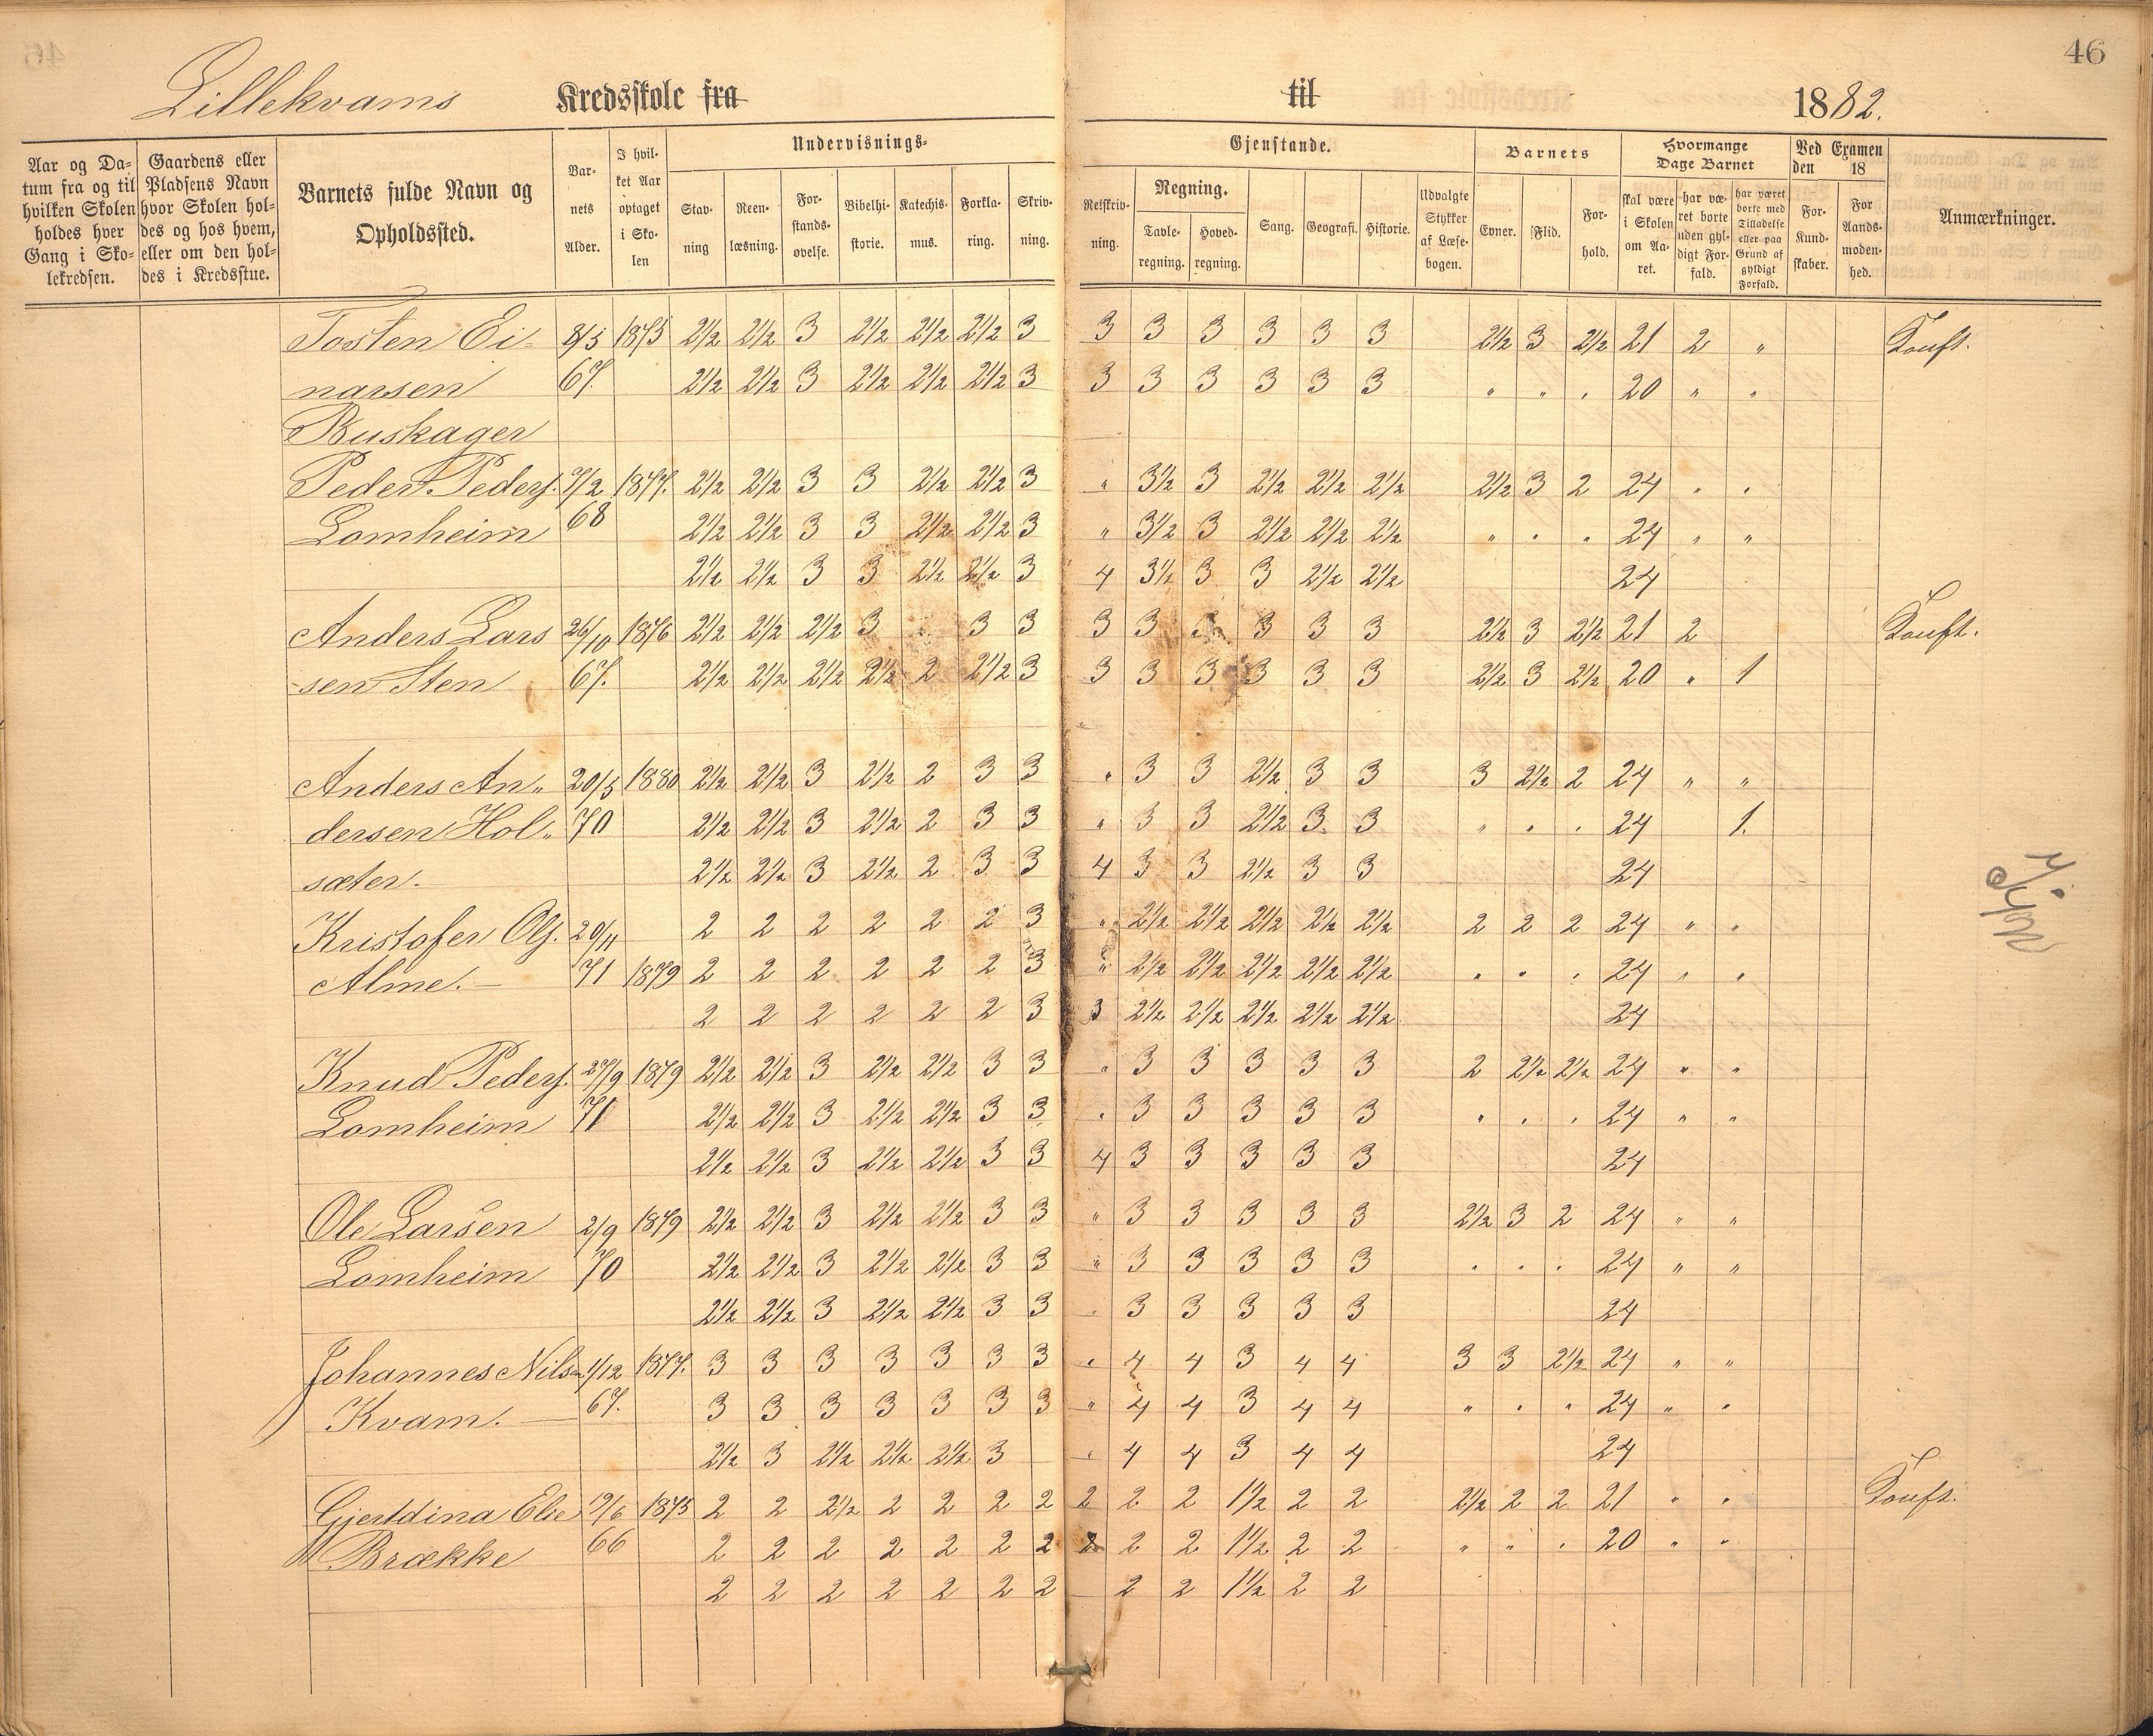 46
Lillekvams Kredsskole fra til 1882.
Aar og Da=
tum fra og til
hvilken Skolen
holdes hver
Gang i Sko=
lekredsen.
Gaardens eller
Pladsens Navn
hvor Skolen hol=
des og hos hvem,
eller om den hol=
des i Kredsstue.
Barnets fulde Navn og
Opholdssted.
Bar=
nets
Alder.
I hvil=
ket Aar
optaget
i Sko=
len
Undervisnings=
Stav=
ning
Reen=
læsning.
For=
stands=
øvelse.
Bibelhi=
storie.
Katechis=
mus.
Forkla=
ring.
Skriv=
ning.
Gjenstande.
Retskriv=
ning.
Regning.
Tavle=
regning.
Hoved=
regning.
Sang.
Geografi.
Historie.
Udvalgte
Stykker
af Læse=
bogen.
Barnets
Evner.
Flid.
For=
hold.
Hvormange
Dage Barnet
skal være
i Skolen
om Aa=
ret.
har væ=
ret borte
uden gyl=
digt For=
fald.
har været
borte med
Tilladelse
eller paa
Grund af
gyldigt
Forfald.
Ved Examen
den 18
For=
Kund=
skaber.
For
Aands=
moden=
hed.
Anmærkninger.
Tosten Ei= 8/5 1875 2½ 2½ 3 2½ 2½ 2½ 3 3 3 3 3 3 3 2½ 3 2½ 21 2 " Konft.
narsen 67. 2½ 2½ 3 2½ 2½ 2½ 3 3 3 3 3 3 3 " " " 20 " "
Buskager
Peder Peders. 7/2 1877. 2½ 2½ 3 3 2½ 2½ 3 " 3½ 3 2½ 2½ 2½ 2½ 3 2 24 " "
Lomheim 68 2½ 2½ 3 3 2½ 2½ 3 " 3½ 3 2½ 2½ 2½ " " " 24 " "
2½ 2½ 3 3 2½ 2½ 3 4 3½ 3 3 2½ 2½ 24
Anders Lars 26/10 1876 2½ 2½ 2½ 3 3 3 3 3 3 3 3 3 2½ 3 2½ 21 2 Konft.
sen Sten 67. 2½ 2½ 2½ 2½ 2 2½ 3 3 3 3 3 3 3 2½ 3 2½ 20 " 1
Anders An= 20/5 1880 2½ 2½ 3 2½ 2 3 3 " 3 3 2½ 3 3 3 2½ 2 24 " "
dersen Hol= 70 2½ 2½ 3 2½ 2 3 3 " 3 3 2½ 3 3 " " " 24 1.
sæter. 2½ 2½ 3 2½ 2 3 3 4 3 3 2½ 3 3 24
Kristofer Ols. 20/11 2 2 2 2 2 2 3 " 2½ 2½ 2½ 2½ 2½ 2 2 2 24 " "
Alme. 71 1879 2 2 2 2 2 2 3 " 2½ 2½ 2½ 2½ 2½ " " " 24 " "
2 2 2 2 2 2 3 3 2½ 2½ 2½ 2½ 2½ 24
Knud Peders. 27/9 1879 2½ 2½ 3 2½ 2½ 3 3 " 3 3 3 3 3 2 2½ 2½ 24 " "
Lomheim 71 2½ 2½ 3 2½ 2½ 3 3 " 3 3 3 3 3 " " " 24 " "
2½ 2½ 3 2½ 2½ 3 3 4 3 3 3 3 3 24
Ole Larsen 2/9 1879 2½ 2½ 3 2½ 2½ 3 3 " 3 3 3 3 3 2½ 3 2 24 " "
Lomheim 70 2½ 2½ 3 2½ 2½ 3 3 " 3 3 3 3 3 " " " 24 " "
2½ 2½ 3 2½ 2½ 3 3 " 3 3 3 3 3 24
Johannes Nilsen 1/12 1877. 3 3 3 3 3 3 3 " 4 4 3 4 4 3 3 2½ 24 " "
Kvam. 67. 3 3 3 3 3 3 3 " 4 4 3 4 4 " " " 24 " "
2½ 3 2½ 2½ 2½ 3 " 4 4 3 4 4 24
Gjertdina Else 19/6 1875 2 2 2½ 2 2 2 2 2 2 2 1½ 2 2 2½ 2 2 21 " " Konft.
Brække 66 2 2 2 2 2 2 2 2 2 2 1½ 2 2 " " " 20 " "
2 2 2 2 2 2 2 2 2 1½ 2 2